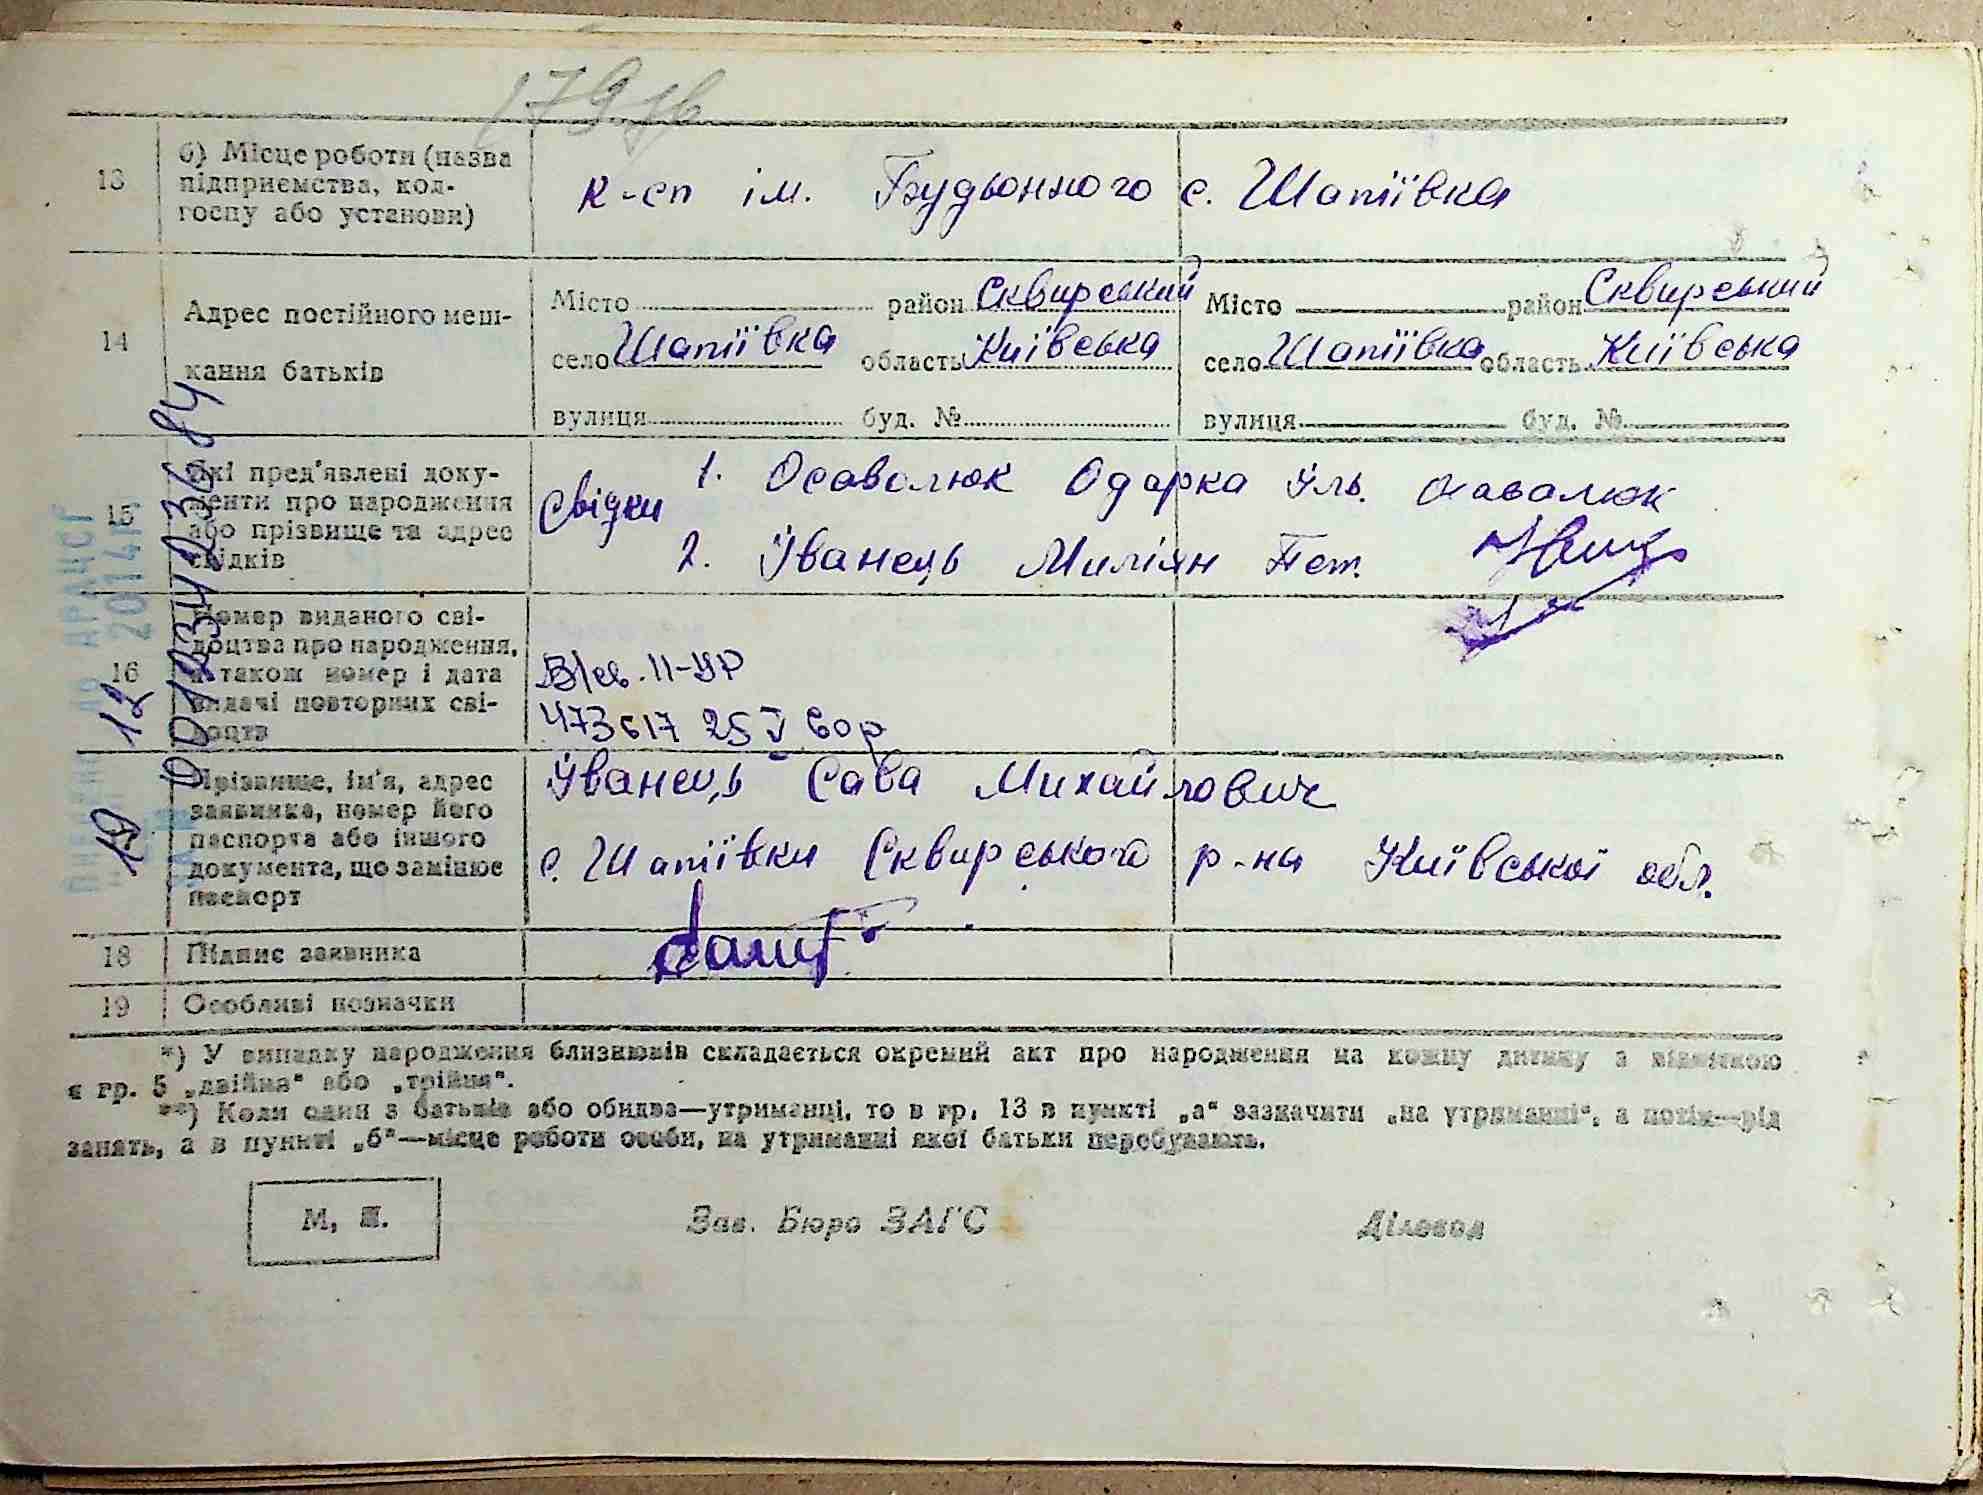 179 зв
13
б) Місце роботи (назва підприємства, колгоспу або установи)
к-сп ім. Будьонного с. Шапіївка
14
Адрес постійного мешкання батьків
Місто район Сквирський
село Шапіївка область Київська
вулиця буд. №
Місто район Сквирський
село Шапіївка область Київська
вулиця буд. №
15
Які пред'явлені документи про народження або прізвище та адрес свідків
Свідки 1. Осаволюк Одарка Уль. Осаволюк
2. Іванець Миліян Пет.
16
Номер виданого свідоцтва про народження, а також номер і дата видачі повторних свідоцтв
В/св. II-УР
473617 25 V
17
Прізвище, ім'я, адрес заявника, номер його паспорта або іншого документа, що замінює паспорт
Іванець Сава Михайлович
с. Шапіївки Сквирського р-на Київської обл.
18
Підпис заявника
19
Особливі позначки
*) У випадку народження близнюків складається окремий акт про народження на кожну дитину з відміткою
в гр. 5 „двійня“ або „трійня“.
**) Коли один з батьків або обидва—утриманці, то в гр. 13 в пункті „а“ зазначити „на утриманні“, а потім—рід
занять, а в пункті „б“—місце роботи особи, на утриманні якої батьки перебувають.
М. П.
Зав. Бюро ЗАГС
Діловод
ДРАЦСГ
2014
19 12
001234123684